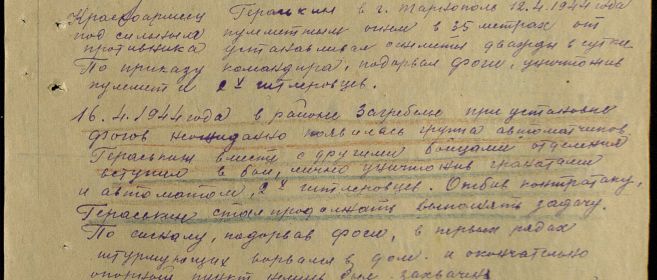 Красноармеец Гераськин в г. Тарнополь 12.4.1944 года
под сильным пулеметным огнем в 35 метрах от
противника устанавливал огнеметы дважды в сутки.
По приказу командира, подорвал фоги, уничтожив
пулемет и 2х гитлеровцев.
16.4.1944 года в районе Загребелье при установке
фогов неожиданно появилась група автоматчиков.
Гераськин вместе с другими бойцами отделения
вступил в бой, лично уничтожив гранатами
и автоматом, 2х гитлеровцев. Отбив контратаку,
Гераськин стал продолжать выполнять задачу.
По сигналу, подорвав фоги, в первых рядах
штурмующих ворвался в дом. и окончательно
опорный пункт немцев был захвачен